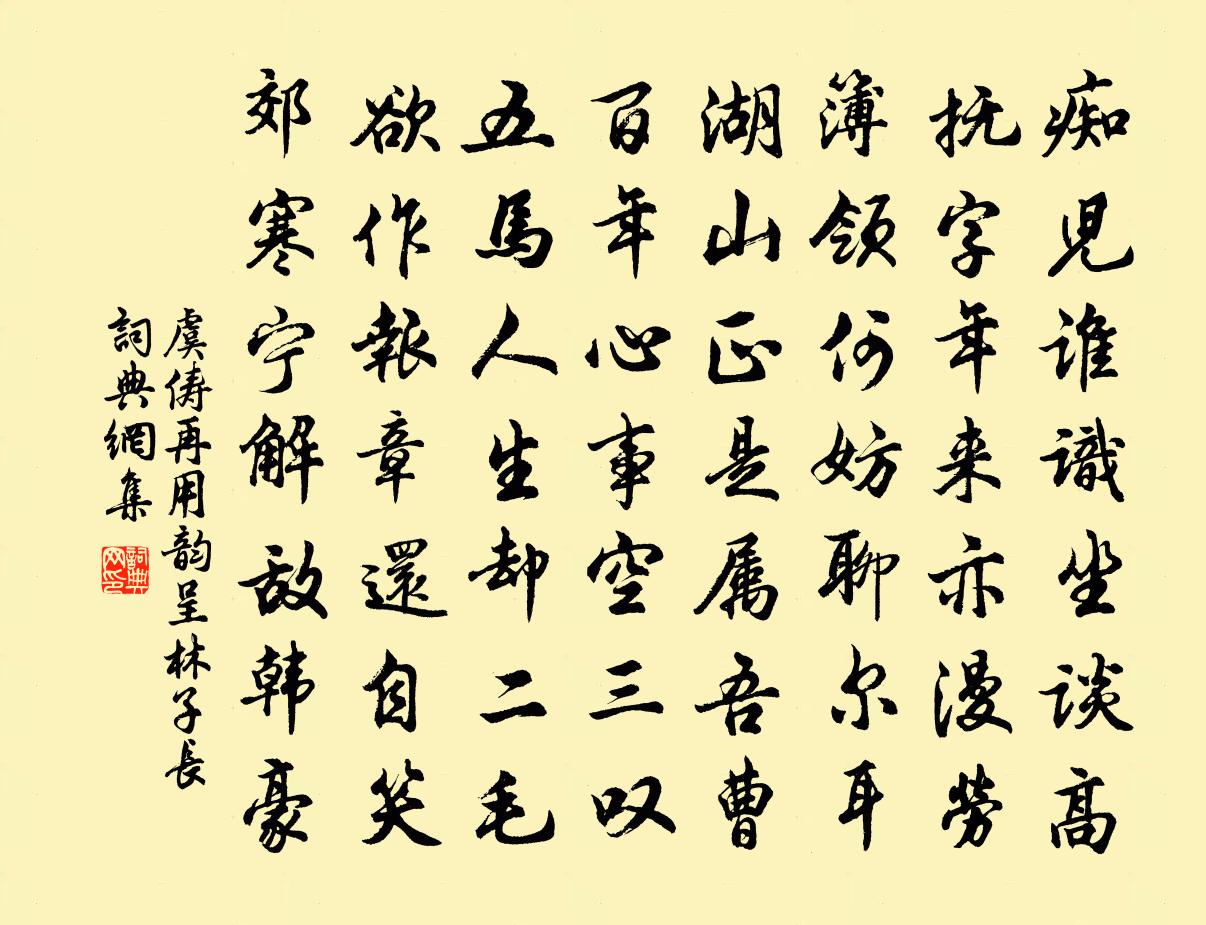 痴児谁識坐谈高
抚字年来亦漫勞
簿领何妨聊尔耳
湖山正是属吾曹
百年心事空三叹
五馬人生却二毛
欲作報章還自笑
郊寒宁解敌韩豪
虞俦再用韵呈林子長
詞典網集
詞典网印